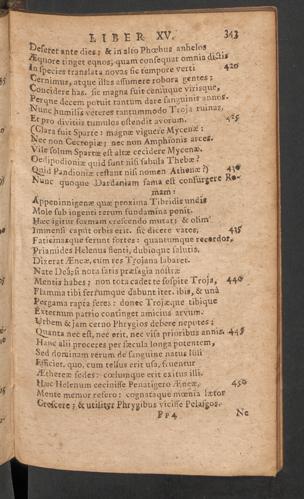 LIBER XV. 343
Deseret ante dies; & in alto Phœbus anhelos
Æquore tinget equos; quam consequar omnia dictis
In species translata novas sic tempore verti 420
Cernimus, atque illas assumere robora gentes;
Concidere has. sic magna fuit censuque virisque,
Perque decem potuit tantum dare sanguinis annos.
Nunc humilis veteres tantummodo Troja ruinas,
Et pro divitiis tumulos ostendit avorum. 425
(Clara fuit Sparte: magnæ viguere Mycenæ:
Nec non Cecropiæ; nec non Amphionis arces.
Vile solum Sparte est altæ cecidere Mycenæ.
Oedipodioniæ quid sunt nisi fabula Thebæ?
Quid Pandioniæ restant nisi nomen Athenæ?) 430
Nunc quoque Dardaniam fama est consurgere Ro-
mam:
Appenninigenæ quæ proxima Tibridis undis
Mole sub ingenti rerum fundamina ponit.
Hæc igitur formam crescendo mutat; & olim
Immensi caput orbis erit. sic dicere vates, 435
Faticinasque ferunt sortes: quantumque recordor,
Priamides Helenus flenti, dubioque salutis,
Dixerat Æneæ, cum res Trojana labaret.
Nate Deâ; si nota satis præsagia nostræ
Mentis habes; non tota cadet te sospite Troja, 440
Flamma tibi ferrumque dabunt iter. ibis, & unà
Pergama rapta feres: donec Trojæque tibique
Externum patrio continget amicius arvum.
Urbem & jam cerno Phrygios debere nepotes;
Quanta nec est, nec erit, nec visa prioribus annis. 445
Hanc alii proceres per sæcula longa potentem,
Sed dominam rerum de sanguine natus Iuli
Efficiet. quo, cum tellus erit usa, fruentur
Æthereæ sedes: cœlumque erit exitus illi.
Hæc Helenum cecinisse Penatigero Æneæ, 450
Mente memor refero: cognataque mœnia lætor
Crescere; & utiliter Phrygibus vicisse Pelasgos.
Pp 4 Ne